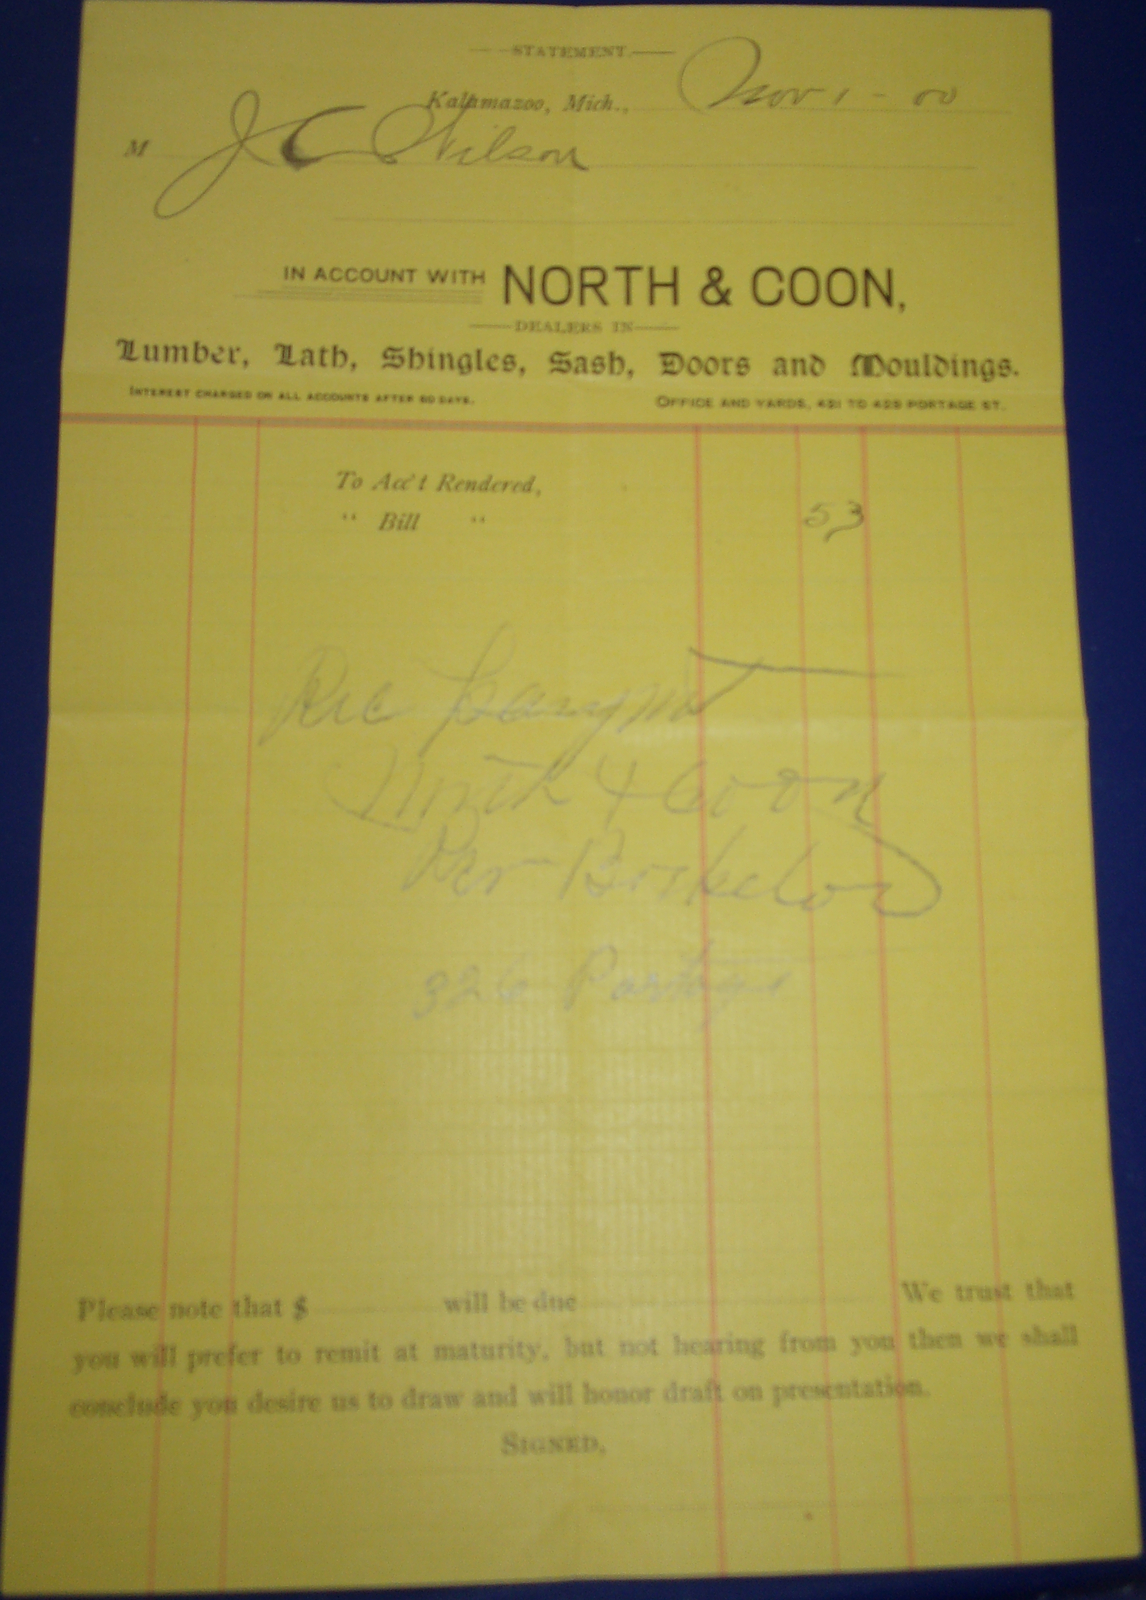 STATEMENT.
Kalamazoo, Mich., Nov 1 - 00
M J C Wilson
IN ACCOUNT WITH NORTH & COON,
DEALERS IN
Lumber, Lath, Shingles, Sash, Doors and Mouldings.
INTEREST CHARGED ON ALL ACCOUNTS AFTER 60 DAYS. OFFICE AND YARDS, 421 TO 425 PORTAGE ST.
To Acc't Rendered,
" Bill " 53
Rec Paymt
North & Coon
Per
326 Portage
Please note that $ will be due We trust that
you will prefer to remit at maturity, but not hearing from you then we shall
conclude you desire us to draw and will honor draft on presentation.
SIGNED,